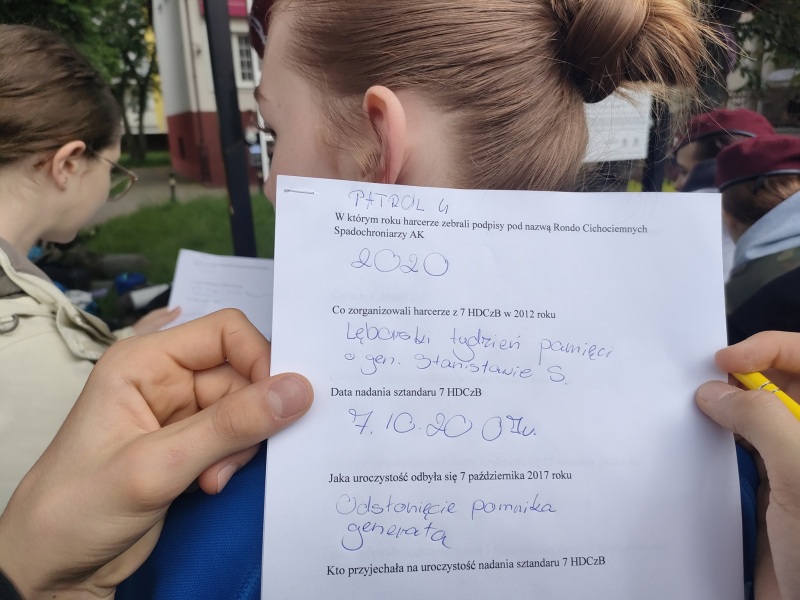 PATROL 4
W którym roku harcerze zebrali podpisy pod nazwą Rondo Cichociemnych
Spadochroniarzy AK
2020
Co zorganizowali harcerze z 7 HDCzB w 2012 roku
Lęborski tydzień pamięci
o gen. Stanisławie S.
Data nadania sztandaru 7 HDCzB
7. 10. 20 07r.
Jaka uroczystość odbyła się 7 października 2017 roku
Odsłonięcie pomnika
generała
Kto przyjechała na uroczystość nadania sztandaru 7 HDCzB